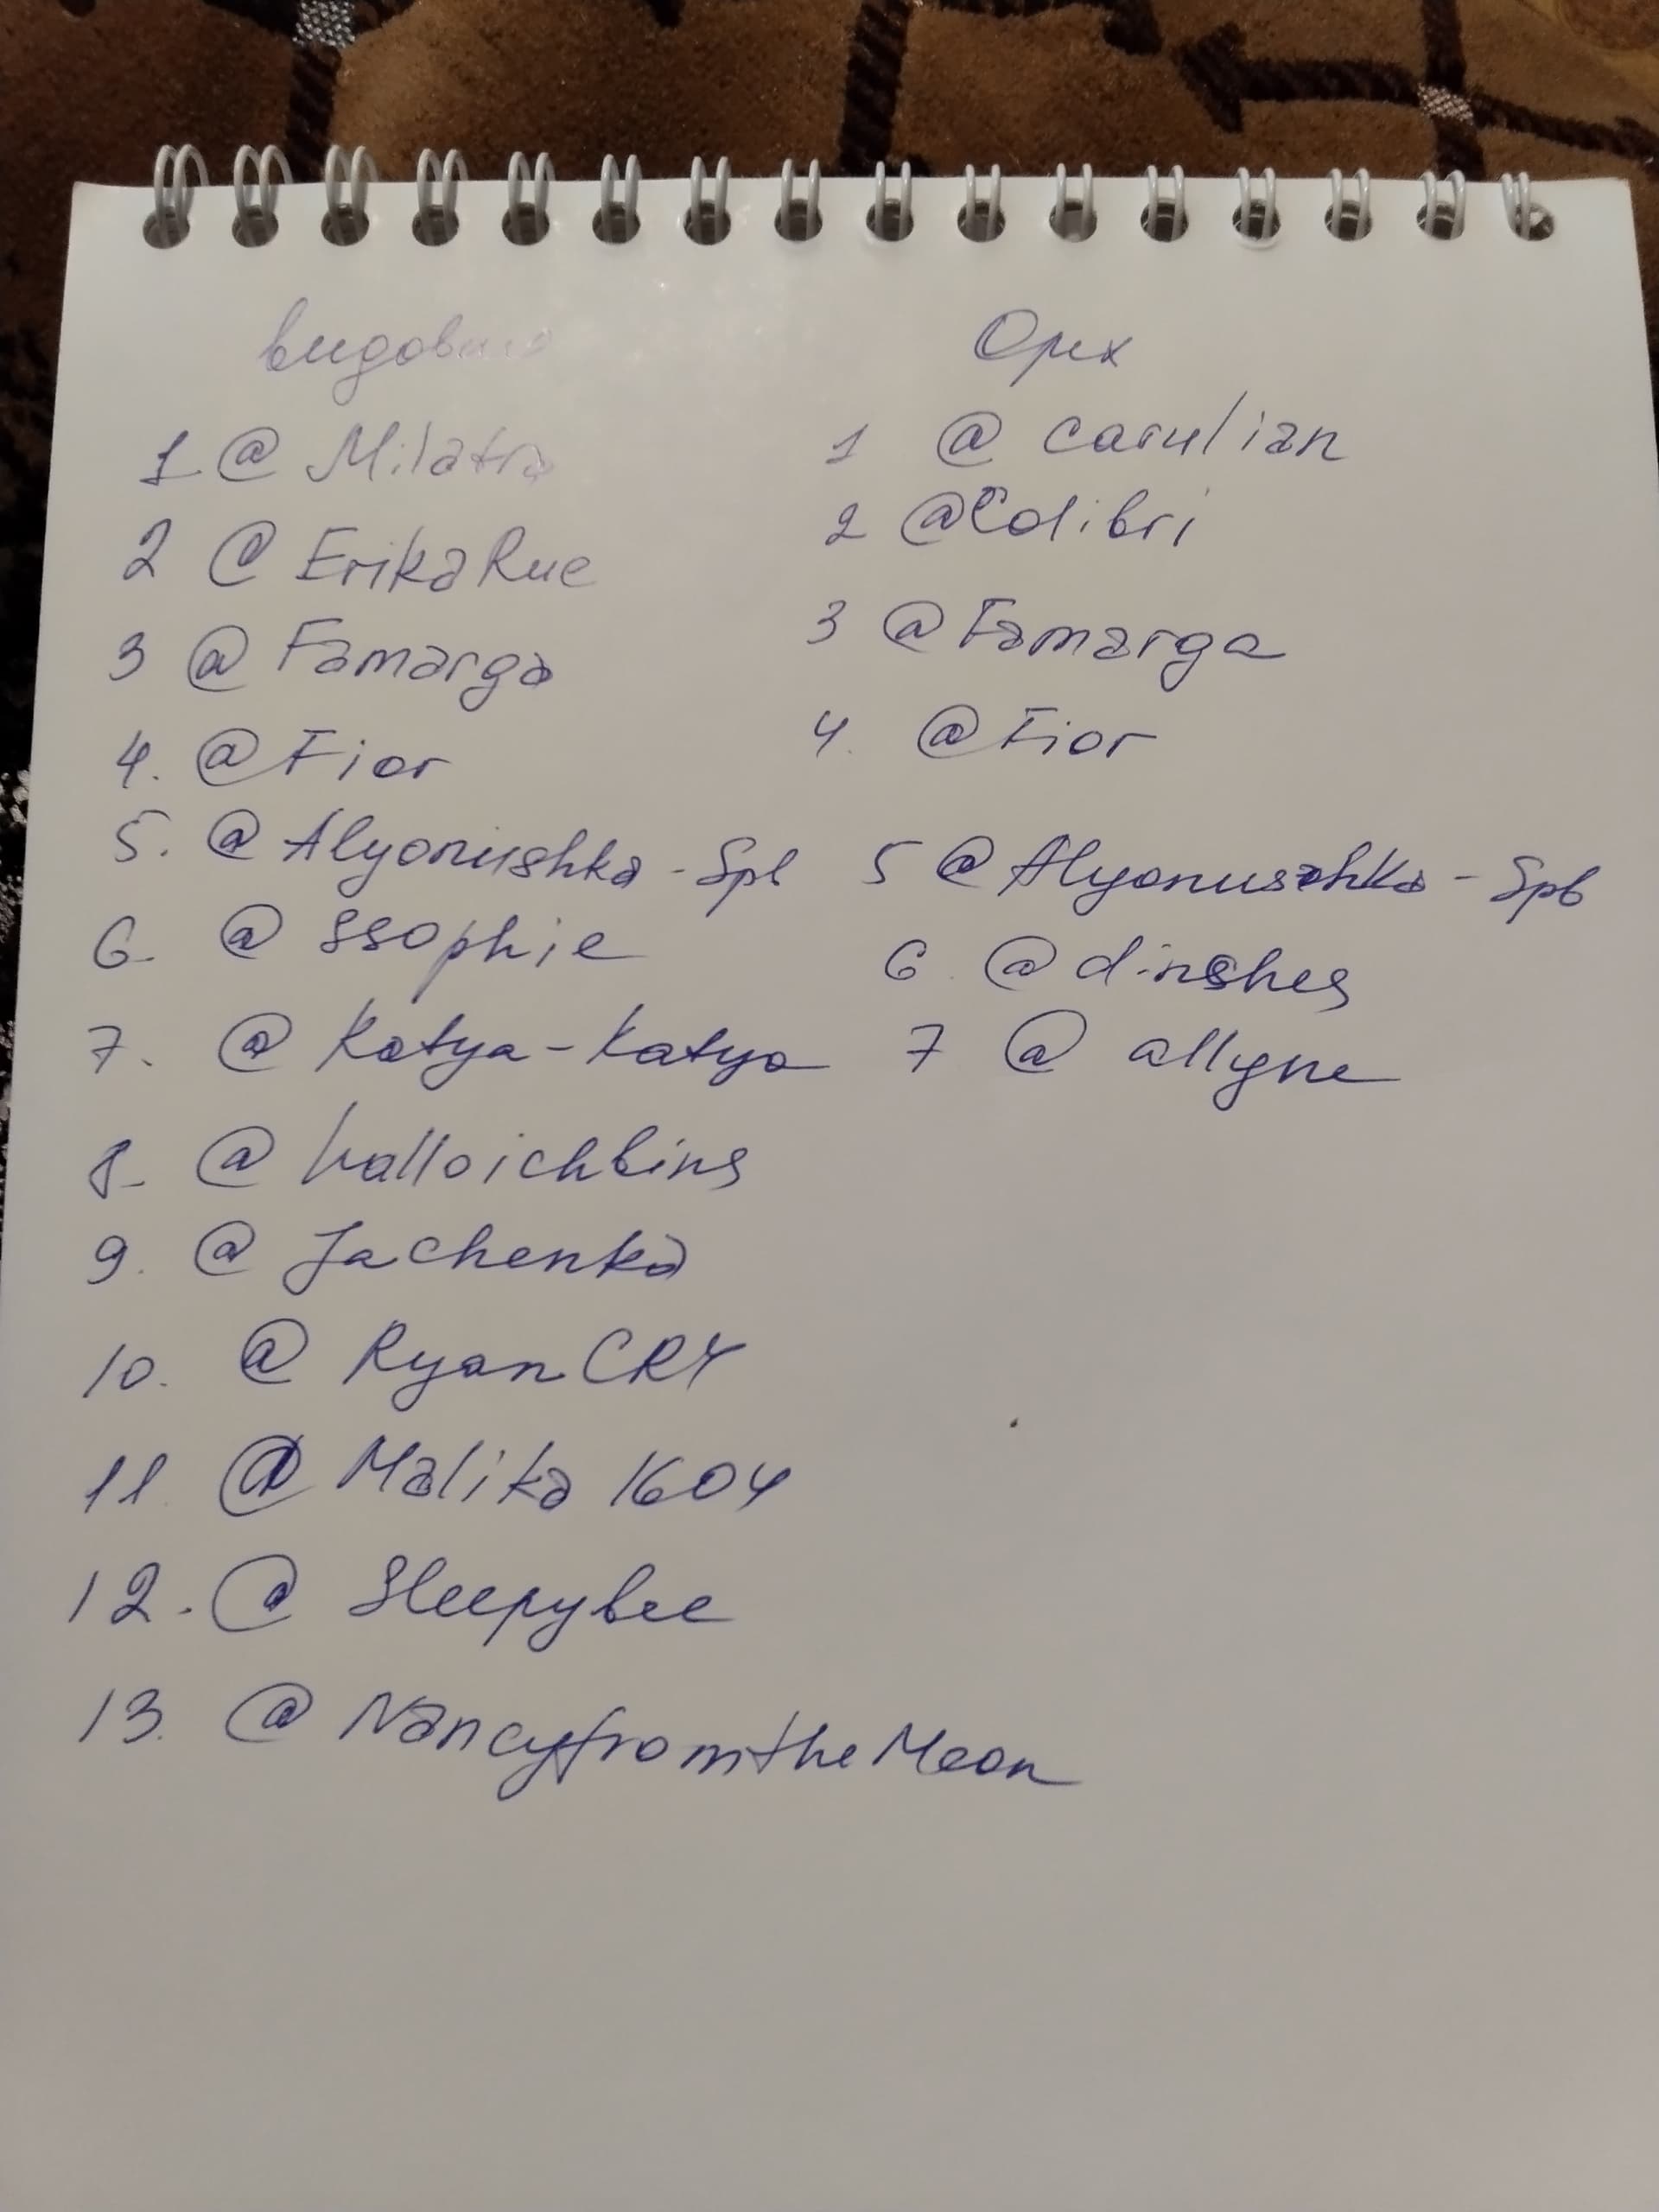 Орех
1 @ Milatra
2 @ ErikaRue
3 @ Famarga
4. @ Fior
5. @ Alyonushka - Spb
6. @ ssophie
7. @ Katya-Katya
8. @ halloichbins
9. @ Jachenka
10. @ RyanCRY
11. @ Malika 1604
12. @ Sleepybee
13. @ NancyfromtheMoon
1 @ carulian
2 @Colibri
3 @ Famarga
4. @ Fior
5 @ Alyonushka - Spb
6 @ dinshes
7 @ allyne